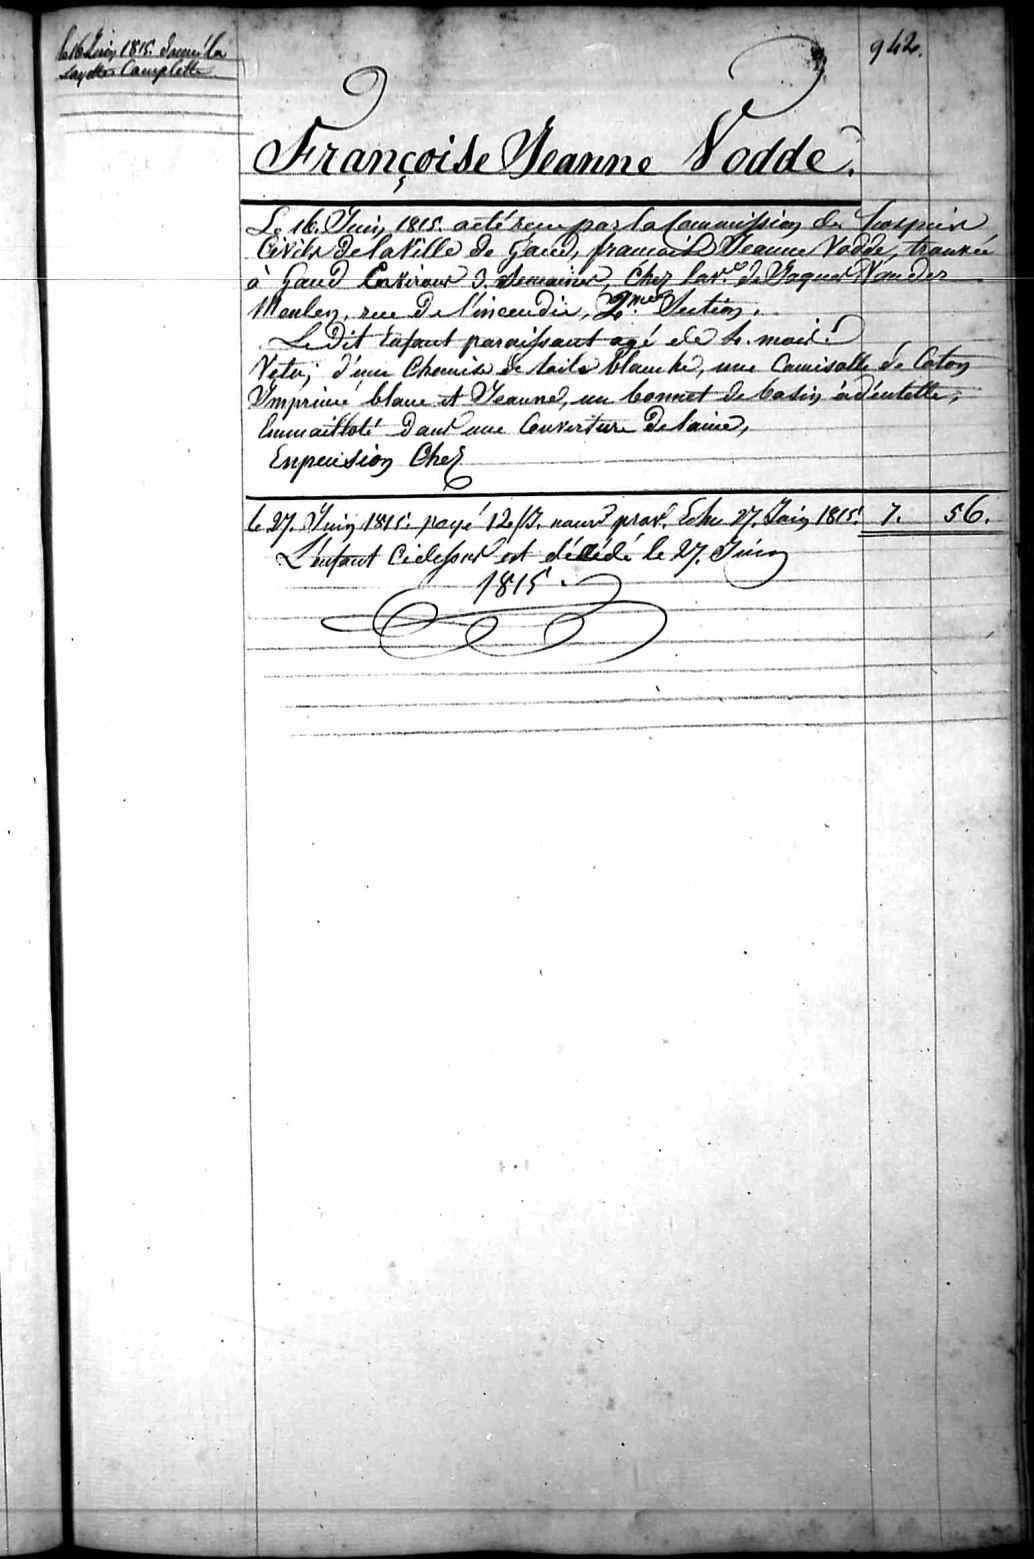 942.
le 16 Juin 1815. donné la
Layette Complette
Françoise Jeanne Vodde.
Le 16. Juin 1815. a été reçu par la Commission des hospices
Civils de la Ville de Gand, francoise Jeanne Vodde, trouvée
à Gand Environ 3. Semaines, Chez la Ve. de Jaques Vander
Meulen, rue De l'incendie, 2.me Section.
Le dit Enfant paraissant agé de 4. mois.
Vetu; d'une Chemise de toile blanche, une Camisolle de Coton
Imprimé blanc et Jeaune, un bonnet de basin à déntelle,
Emmailloté dans une Couverture De laine,
Enpension Chez
le 27. Juin 1815. payé 12 Echu 27. Juin 1815. 7. 56.
L'enfant Cidessus est décédé le 27. Juin
1815.